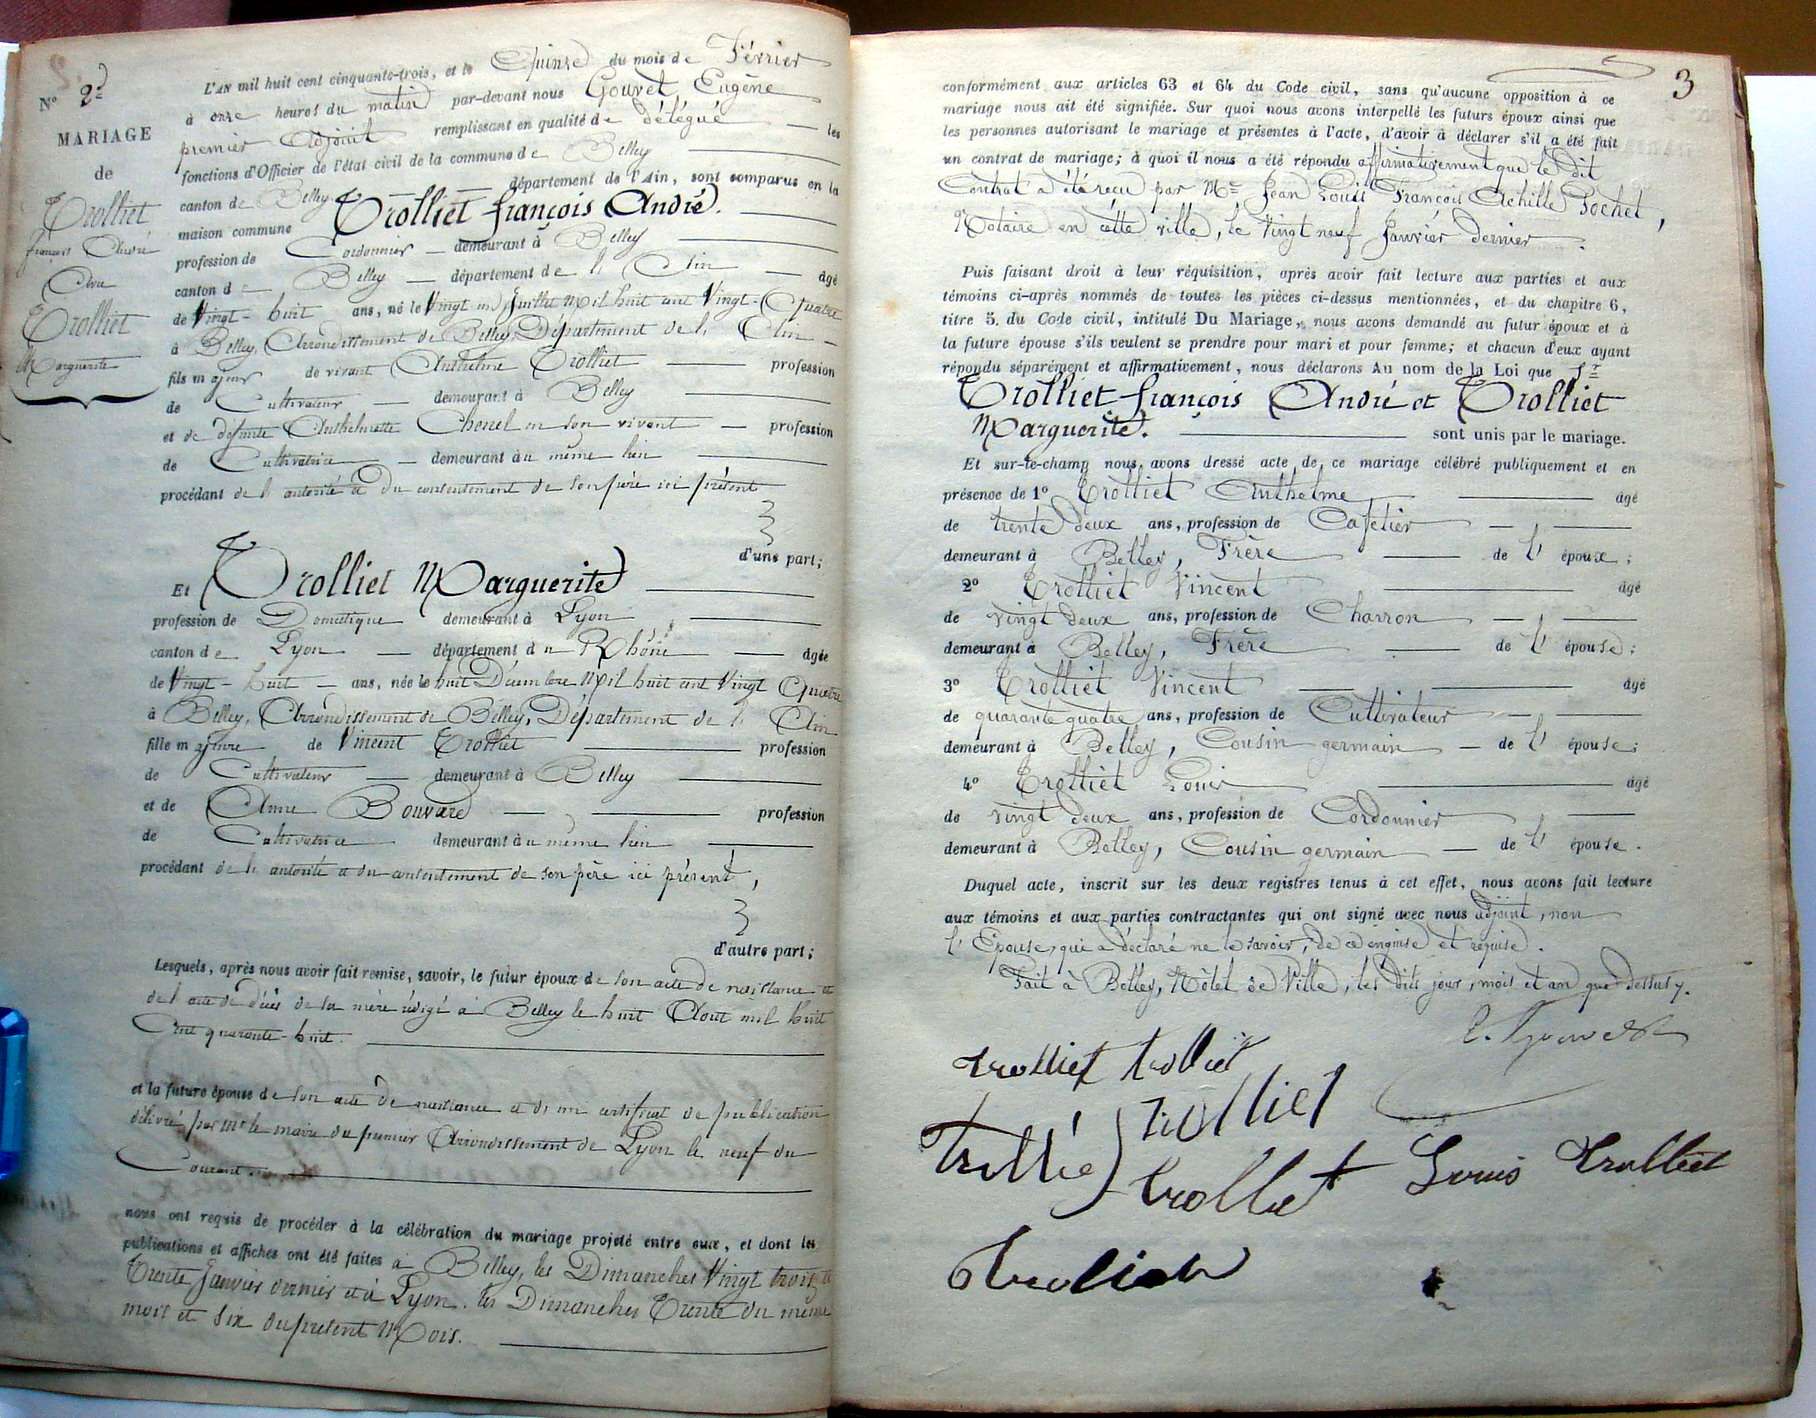 N° 2e
MARIAGE
de
Trolliet
françois André
Et
Trolliet
Marguerite
L'AN mil huit cent cinquante-trois, et le Quinze du mois de Février
à onze heures du matin par-devant nous Gouvet, Eugène
premier Adjoint remplissant en qualité de délégué les
fonctions d'Officier de l'état civil de la commune de Belley
canton de Belley département de l'Ain, sont comparus en la
maison commune Trolliet françois André.
profession de Cordonnier demeurant à Belley
canton de Belley département de l'Ain âgé
de Vingt-huit ans, né le Vingt un Juillet Mil huit cent Vingt-Quatre
à Belley, Arrondissement de Belley, Département de l'Ain
fils majeur de vivant Anthelme Trolliet profession
de Cultivateur demeurant à Belley
et de défunte Anthelmette Chenel en son vivant profession
de Cultivatrice demeurant au même lieu
procédant de l'autorité et du consentement de son père ici présent
d'une part;
Et Trolliet Marguerite
profession de Domestique demeurant à Lyon
canton de Lyon département du Rhône âgée
de Vingt-huit ans, née le huit Décembre Mil huit cent Vingt Quatre
à Belley, Arrondissement de Belley, Département de l'Ain
fille majeure de Vincent Trolliet profession
de Cultivateur demeurant à Belley
et de Anne Bouvard profession
de Cultivatrice demeurant au même lieu
procédant de l'autorité et du consentement de son père ici présent,
d'autre part;
Lesquels, après nous avoir fait remise, savoir, le futur époux de son acte de naissance et
de l'acte de décès de sa mère rédigé à Belley le huit Aout mil huit
Cent quarante-huit.
et la future épouse de son acte de naissance et d'un certificat de publication
délivré par Mr le maire du premier Arrondissement de Lyon le neuf du
Courant.
nous ont requis de procéder à la célébration du mariage projeté entre eux, et dont les
publications et affiches ont été faites à Belley, les Dimanches Vingt trois et
Trente Janvier dernier et à Lyon les Dimanches Trente du même
mois et Six du présent Mois.
3
conformément aux articles 63 et 64 du Code civil, sans qu'aucune opposition à ce
mariage nous ait été signifiée. Sur quoi nous avons interpellé les futurs époux ainsi que
les personnes autorisant le mariage et présentes à l'acte, d'avoir à déclarer s'il a été fait
un contrat de mariage; à quoi il nous a été répondu affirmativement que le dit
Contrat a été reçu par Me Jean Louis François Achille Pochet,
Notaire en cette ville, le Vingt neuf Janvier dernier.
Puis faisant droit à leur réquisition, après avoir fait lecture aux parties et aux
témoins ci-après nommés de toutes les pièces ci-dessus mentionnées, et du chapitre 6,
titre 5, du Code civil, intitulé Du Mariage, nous avons demandé au futur époux et à
la future épouse s'ils veulent se prendre pour mari et pour femme; et chacun d'eux ayant
répondu séparément et affirmativement, nous déclarons Au nom de la Loi que Sr
Trolliet françois André et Trolliet
Marguerite. sont unis par le mariage.
Et sur-le-champ nous avons dressé acte de ce mariage célébré publiquement et en
présence de 1° Trolliet Anthelme âgé
de trente deux ans, profession de Cafetier
demeurant à Belley, Frère de l'époux;
2° Trolliet Vincent âgé
de vingt deux ans, profession de Charron
demeurant à Belley, Frère de l'épouse;
3° Trolliet Vincent âgé
de quarante quatre ans, profession de Cultivateur
demeurant à Belley, Cousin germain de l'épouse;
4° Trolliet Louis âgé
de vingt deux ans, profession de Cordonnier
demeurant à Belley, Cousin germain de l'épouse.
Duquel acte, inscrit sur les deux registres tenus à cet effet, nous avons fait lecture
aux témoins et aux parties contractantes qui ont signé avec nous adjoint, non
l'Épouse, qui a déclaré ne le savoir, de ce enquise et requise.
Fait à Belley, Hôtel de Ville, les dits jour, mois et an que dessus.
E. Gouvet
trolliet trolliet
Trolliet trolliet
trolliet Louis Trolliet
trolliet